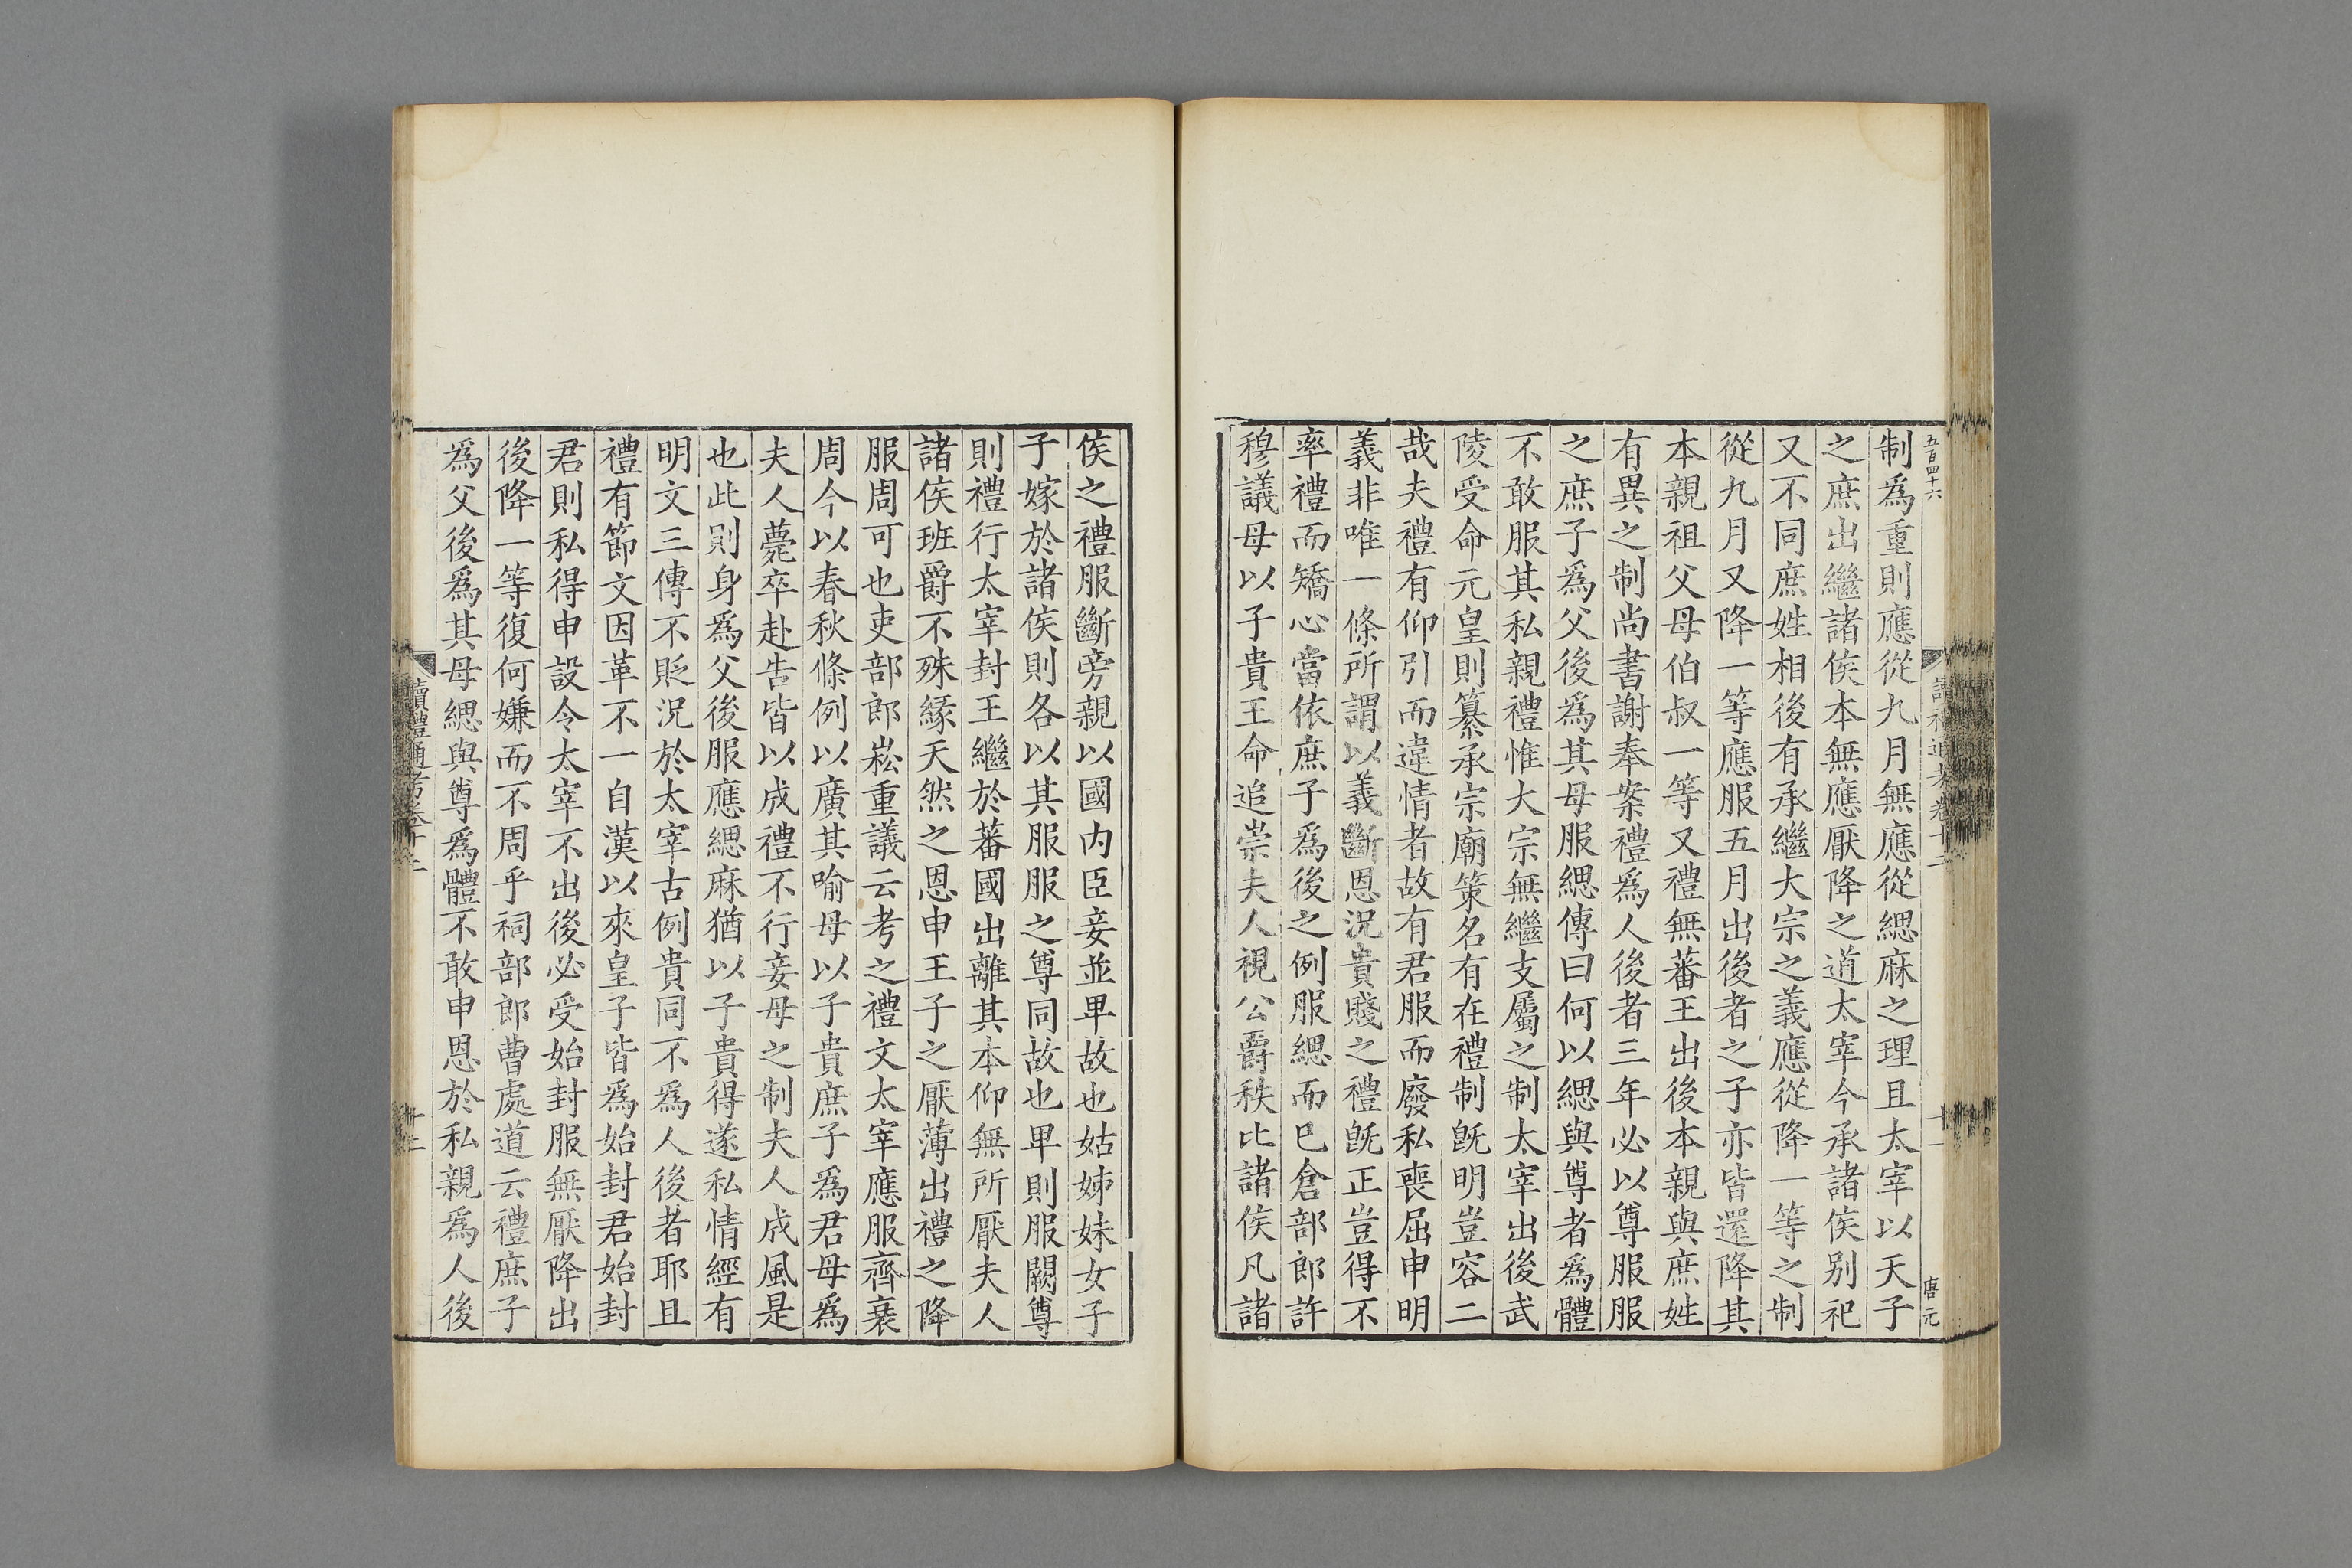 五百四十六
讀禮通考卷十二
十一
唐元
制爲重則應從九月無應從緦麻之理且太宰以天子
之庶出繼諸侯本無應厭降之道太宰今承諸侯别祀
又不同庶姓相後有承繼大宗之義應從降一等之制
從九月又降一等應服五月出後者之子亦皆還降其
本親祖父母伯叔一等又禮無蕃王出後本親與庶姓
有異之制尚書謝奉案禮爲人後者三年必以尊服服
之庶子爲父後爲其母服緦傳曰何以緦與尊者爲體
不敢服其私親禮惟大宗無繼支屬之制太宰出後武
陵受命元皇則纂承宗廟策名有在禮制旣明豈容二
哉夫禮有仰引而違情者故有君服而廢私喪屈申明
義非唯一條所謂以義斷恩況貴賤之禮旣正豈得不
率禮而矯心當依庶子爲後之例服緦而已倉部郎許
穆議母以子貴王命追崇夫人視公爵秩比諸侯凡諸
侯之禮服斷旁親以國内臣妾並卑故也姑姊妹女子
子嫁於諸侯則各以其服服之尊同故也卑則服闕尊
則禮行太宰封王繼於蕃國出離其本仰無所厭夫人
諸侯班爵不殊緣天然之恩申王子之厭薄出禮之降
服周可也吏部郎崧重議云考之禮文太宰應服齊衰
周今以春秋條例以廣其喻母以子貴庶子爲君母爲
夫人薨卒赴告皆以成禮不行妾母之制夫人成風是
也此則身爲父後服應緦麻猶以子貴得遂私情經有
明文三傳不貶況於太宰古例貴同不爲人後者耶且
禮有節文因革不一自漢以來皇子皆爲始封君始封
君則私得申設令太宰不出後必受始封服無厭降出
後降一等復何嫌而不周乎祠部郎曹處道云禮庶子
爲父後爲其母緦與尊爲體不敢申恩於私親爲人後
讀禮通考卷十二